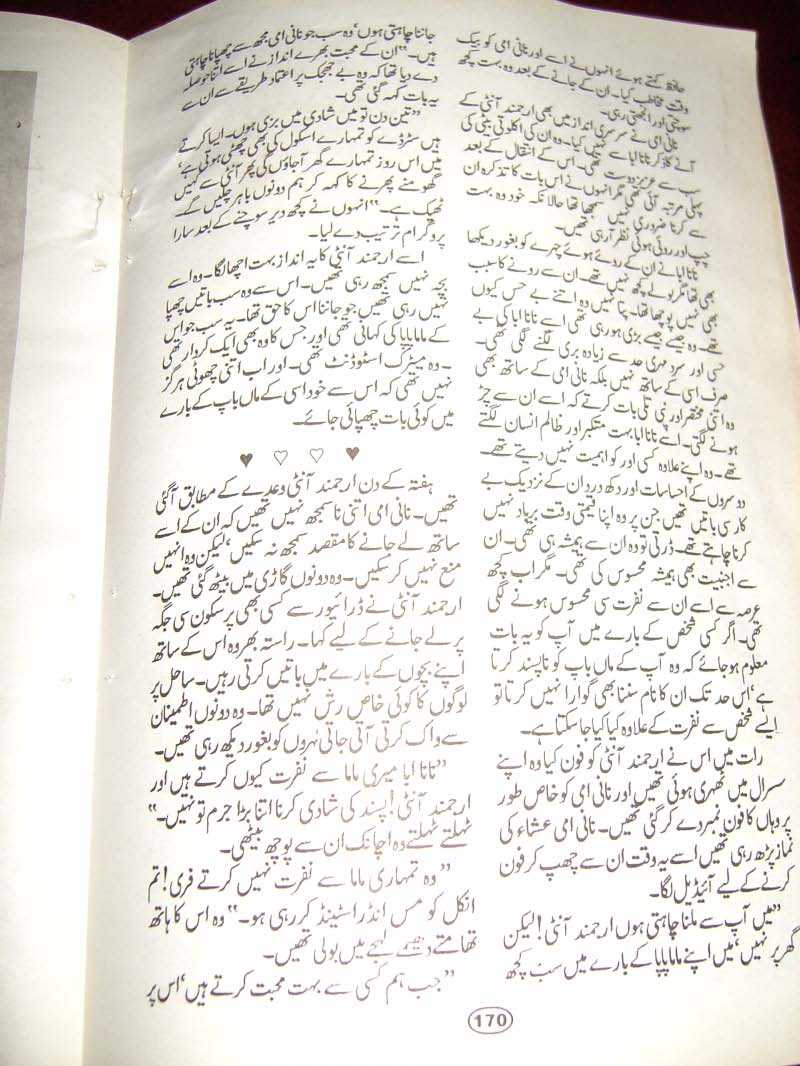 حافظ کہتے ہوئے انہوں نے اسے اور نانی امی کو بیک
وقت مخاطب کیا۔ ان کے جانے کے بعد وہ بہت کچھ
سوچتی اور الجھتی رہی۔
نانی امی نے سرسری انداز میں بھی ارجمند آنٹی کے
آنے کا ذکر نانا ابا سے نہیں کیا۔ وہ ان کی اکلوتی بیٹی کی
سب سے عزیز دوست تھی۔ اس کے انتقال کے بعد
پہلی مرتبہ آئی تھی مگر انہوں نے اس بات کا تذکرہ ان
سے کرنا ضروری نہیں سمجھا تھا حالانکہ خود وہ بہت
چپ اور روئی ہوئی نظر آرہی تھیں۔
نانا ابا نے ان کے روئے ہوئے چہرے کو بغور دیکھا
بھی تھا مگر بولے کچھ نہیں تھے۔ ان سے رونے کا سبب
بھی نہیں پوچھا تھا۔ پتا نہیں وہ اتنے بے حس کیوں
تھے۔ وہ جیسے جیسے بڑی ہورہی تھی اسے نانا ابا کی بے
حسی اور سرد مہری حد سے زیادہ بری لگنے لگی تھی۔
صرف اسی کے ساتھ نہیں بلکہ نانی امی کے ساتھ بھی
وہ اتنی مختصر اور نپی تلی بات کرتے کہ اسے ان سے چڑ
ہونے لگتی۔ اسے نانا ابا بہت متکبر اور ظالم انسان لگتے
تھے۔ وہ اپنے علاوہ کسی اور کو اہمیت نہیں دیتے تھے۔
دوسروں کے احساسات اور دکھ درد ان کے نزدیک بے
کار سی باتیں تھیں جن پر وہ اپنا قیمتی وقت برباد نہیں
کرنا چاہتے تھے۔ ڈرتی تو وہ ان سے ہمیشہ ہی تھی۔ ان
سے اجنبیت بھی ہمیشہ محسوس کی تھی۔ مگر اب کچھ
عرصہ سے اسے ان سے نفرت سی محسوس ہونے لگی
تھی۔ اگر کسی شخص کے بارے میں آپ کو یہ بات
معلوم ہوجائے کہ وہ آپ کے ماں باپ کو ناپسند کرتا
ہے، اس حد تک ان کا نام سننا بھی گوارا نہیں کرتا تو
ایسے شخص سے نفرت کے علاوہ کیا کیا جاسکتا ہے۔
رات میں اس نے ارجمند آنٹی کو فون کیا وہ اپنے
سسرال میں ٹھہری ہوئی تھیں اور نانی امی کو خاص طور
پر وہاں کا فون نمبر دے کر گئی تھیں۔ نانی امی عشاء کی
نماز پڑھ رہی تھیں اسے یہ وقت ان سے چھپ کر فون
کرنے کے لیے آئیڈیل لگا۔
”میں آپ سے ملنا چاہتی ہوں ارجمند آنٹی! لیکن
گھر پر نہیں، میں اپنے ماما پاپا کے بارے میں سب کچھ
جاننا چاہتی ہوں، وہ سب جو نانی امی مجھ سے چھپانا چاہتی
ہیں۔“ ان کے محبت بھرے انداز نے اسے اتنا حوصلہ
دے دیا تھا کہ وہ بے جھجک پر اعتماد طریقے سے ان سے
یہ بات کہہ گئی تھی۔
”تین دن تو میں شادی میں بزی ہوں۔ ایسا کرتے
ہیں سٹرڈے کو تمہارے اسکول کی بھی چھٹی ہوتی ہے،
میں اس روز تمہارے گھر آجاؤں گی پھر آنٹی سے کہیں
گھومنے پھرنے کا کہہ کر ہم دونوں باہر چلیں گے۔
ٹھیک ہے۔“ انہوں نے کچھ دیر سوچنے کے بعد سارا
پروگرام ترتیب دے لیا۔
اسے ارجمند آنٹی کا یہ انداز بہت اچھا لگا۔ وہ اسے
بچہ نہیں سمجھ رہی تھیں۔ اس سے وہ سب باتیں چھپا
نہیں رہی تھیں جو جاننا اس کا حق تھا۔ یہ سب جو اس
کے ماما پاپا کی کہانی تھی اور جس کا وہ بھی ایک کردار تھی
۔ وہ میٹرک اسٹوڈنٹ تھی۔ اور اب اتنی چھوٹی ہرگز
نہیں تھی کہ اس سے خود اسی کے ماں باپ کے بارے
میں کوئی بات چھپائی جائے۔
♥ ♡ ♡ ♥
ہفتہ کے دن ارجمند آنٹی وعدے کے مطابق آگئی
تھیں۔ نانی امی اتنی ناسمجھ نہیں تھیں کہ ان کے اسے
ساتھ لے جانے کا مقصد سمجھ نہ سکیں، لیکن وہ انہیں
منع نہیں کرسکیں۔ وہ دونوں گاڑی میں بیٹھ گئی تھیں۔
ارجمند آنٹی نے ڈرائیور سے کسی بھی پرسکون سی جگہ
پر لے جانے کے لیے کہا۔ راستہ بھر وہ اس کے ساتھ
اپنے بچوں کے بارے میں باتیں کرتی رہیں۔ ساحل پر
لوگوں کا کوئی خاص رش نہیں تھا۔ وہ دونوں اطمینان
سے واک کرتی آتی جاتی لہروں کو بغور دیکھ رہی تھیں۔
”نانا ابا میری ماما سے نفرت کیوں کرتے ہیں اور
ارجمند آنٹی! پسند کی شادی کرنا اتنا بڑا جرم تو نہیں۔“
ٹہلتے ٹہلتے وہ اچانک ان سے پوچھ بیٹھی۔
”وہ تمہاری ماما سے نفرت نہیں کرتے فری! تم
انکل کو مس انڈر اسٹینڈ کررہی ہو۔“ وہ اس کا ہاتھ
تھامتے دھیمے لہجے میں بولی تھیں۔
”جب ہم کسی سے بہت محبت کرتے ہیں، اس پر
170